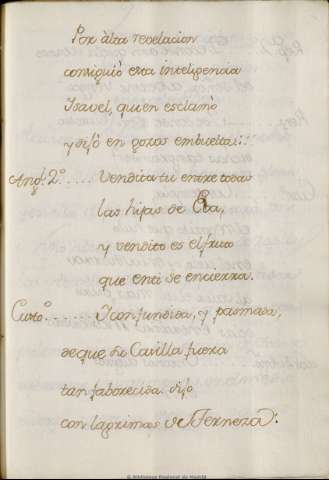 Por àlta revelacion
consiguiò esta inteligencia
Isavel, quien esclamò
y dijò en gozos embuelta:::
Angl. 2º...... Vendita tu entre todas
las hijas de Eva,
y vendito es el fruto
que en ti se encierra.
Custº......... I confundida, y pasmada,
de que su Casilla fuera
tan faborecida dijo
con lagrimas de Terneza:
© Biblioteca Nacional de Madrid